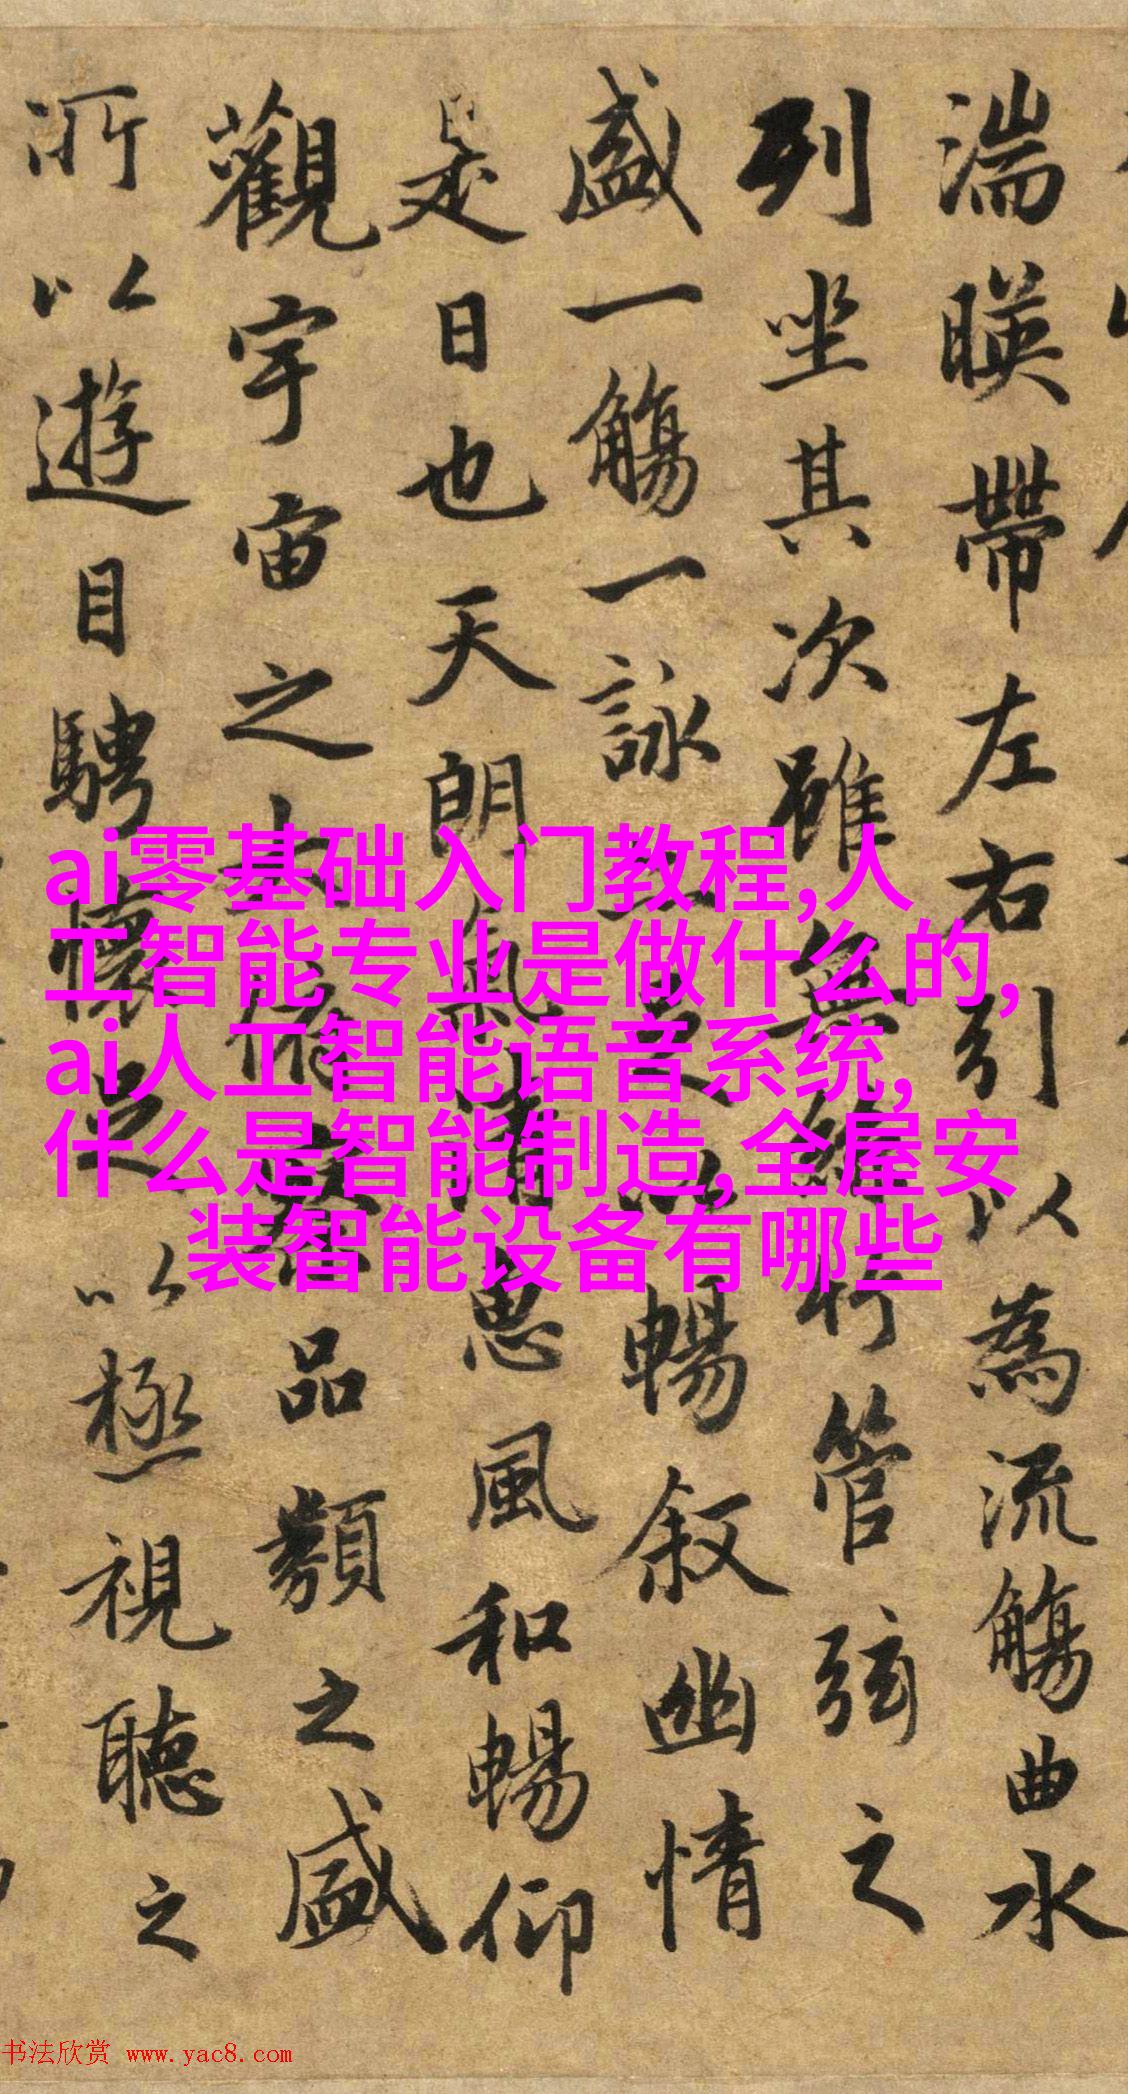 湍暎帶左右引以為流觴曲水
列坐其次雖無絲竹管弦之
盛一觴一詠亦足以暢叙幽情
是日也天朗氣清惠風和暢仰
觀宇宙之大俯察品類之盛
所以遊目騁懷足以極視聽之
ai零基础入门教程,人
工智能专业是做什么的,
ai人工智能语音系统,
什么是智能制造,全屋安
装智能设备有哪些
书法欣赏 www.yac8.com